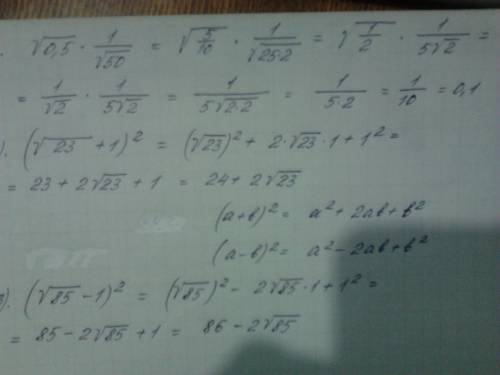 . √0,5 · 1/√50 = √(5/10) · 1/√(25·2) = √(1/2) · 1/(5√2) =
= 1/√2 · 1/(5√2) = 1/(5√(2·2)) = 1/(5·2) = 1/10 = 0,1
). (√23 + 1)² = (√23)² + 2·√23·1 + 1² =
= 23 + 2√23 + 1 = 24 + 2√23
(a+b)² = a² + 2ab + b²
(a−b)² = a² − 2ab + b²
). (√85 − 1)² = (√85)² − 2√85·1 + 1² =
= 85 − 2√85 + 1 = 86 − 2√85